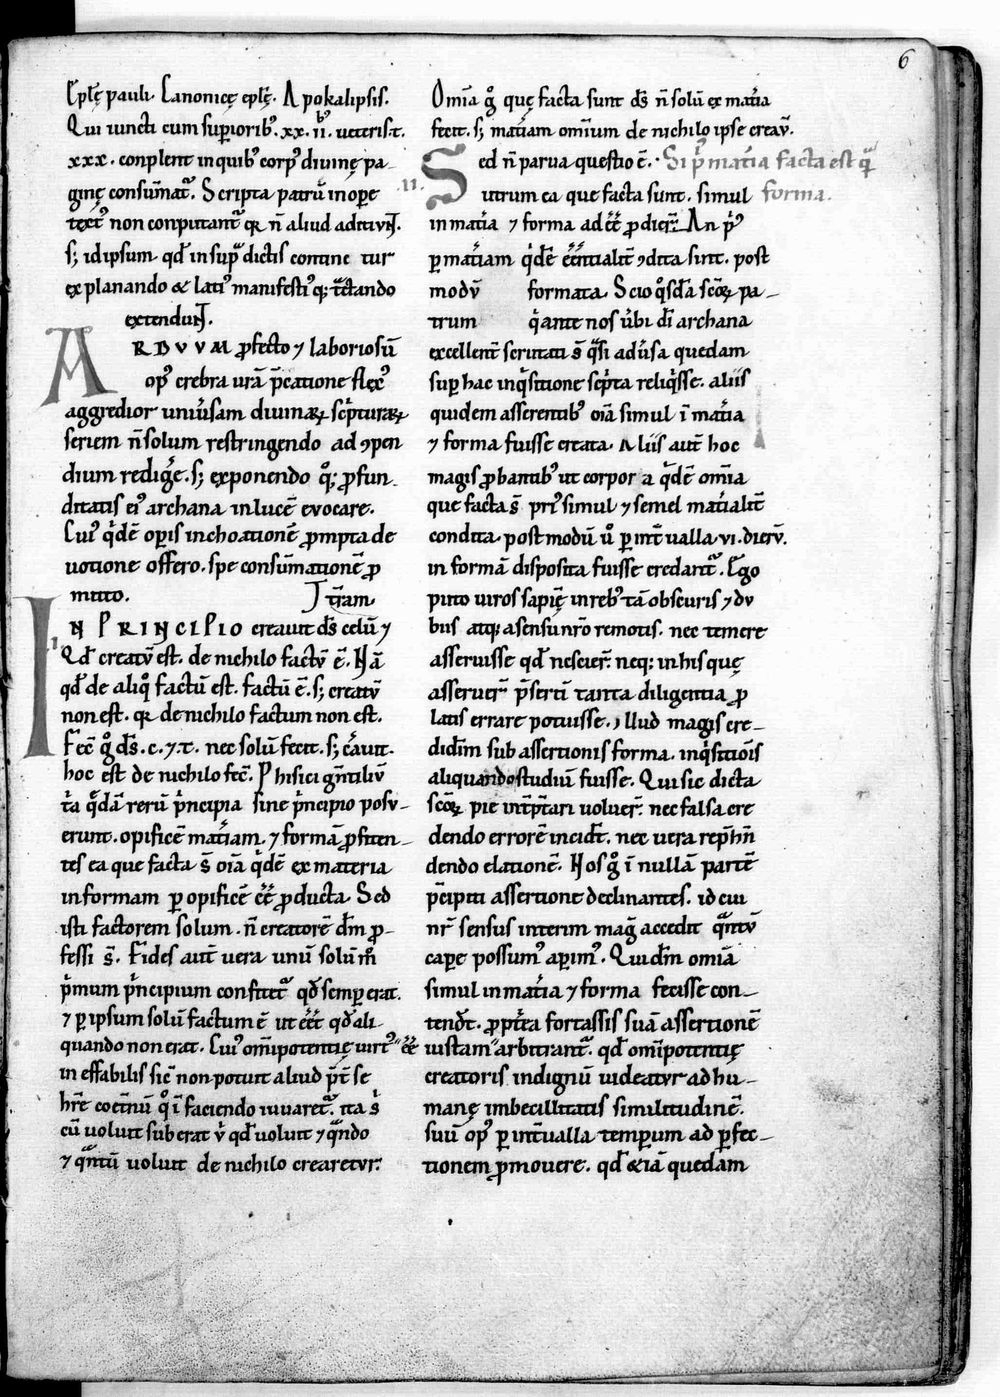 6
Eplę pauli. Canonicę eplę. Apokalipsis.
Qui iuncti cum superiorib᷒. xx. ii. ueteris. t.
xxx. conplent in quib᷒ corp᷒ diuinę pa-
ginę consūmat᷑. Scripta patrū in ope
non conputant᷑ qr n̄ aliud
s; id ipsum qd̄ in sup̄ dictis contine tur
explanando & lati᷒ manifesti᷒ q; tͣctando
extendunt᷑.
ARDVVM ꝓfecto ⁊ laboriosū
op᷒ crebra urā p̄catione flex᷒
aggredior uniūsam diuinaꝝ scͥpturaꝝ
seriem n̄ solum restringendo ad ꝯpen
dium rediḡe. s; exponendo qͦ; ꝓfun-
ditatis ei᷒ archana in lucē evocare.
Cui᷒ qͥdē opis inchoationē ꝓmpta de
uotione offero. spe consūmationē ꝓ
mitto. t̄ram
IN PRINCIPIO creauit ds̄ celū ⁊
Qd̄ creatū est. de nichilo factū ē. Nā
qd̄ de aliqͦ factū est. factū ē. s; creatū
non est. qr de nichilo factum non est.
Fec̄ gͦ ds̄. c. ⁊. t. nec solū fecit. s; c̄auit.
hoc est de nichilo fec̄. Phisici gn̄tiliū
qͥdā rerū pͥncipia sine pͥncipio posu-
erunt. opificē mat̄iam. ⁊ formā ꝓfiten-
tes ea que facta s̄ oīa qͥdē ex materia
in formam p opificē ēē ꝓducta. Sed
isti factorem solum. n̄ creatorē dm̄ ꝓ-
fessi s̄. Fides aut̄ uera unū solū m̊
pͥmum pͥncipium confitet᷑ qd̄ semp erat.
⁊ p ipsum solū factum ē ut ēēt qd̄ ali
quando non erat. Cui᷒ om̄ipotentię uirt᷒ ēē
in effabilis sic̄ non potuit aliud p̄t se
hr̄e coet̄nū qͦ ī faciendo iuuaret᷑. ita sͥ
cū uoluit suberat ut̄ qd̄ uoluit ⁊ qͣndo
⁊ qͣntū uoluit de nichilo crearetur.
Om̄ia gͦ quę facta sunt ds̄ n̄ solū ex mat̄ia
fecit. s; mat̄iam omīum de nichilo ipse creau̅.
.II. Sed n̄ parua questio ē. Si pͥ᷒ mat̄ia facta est qͣ̄
utrum ea que facta sunt. simul forma.
in mat̄ia ⁊ forma ad ēē ꝓdier̄. An pͥ᷒
p mat̄iam qͥdē ēēntialit̄ ꝯdita sint. post
modū formata. Scio qͦsdā scōꝝ pa-
trum qͥ ante nos ūbi dī archana
excellent̄ scrutati s̄ qͣsi adūsa quedam
sup hac inqͥsitione scͥpta reliqͥsse. aliis
quidem asserentib᷒ oīa simul ī mat̄ia
⁊ forma fuisse creata. Aliis aut̄ hoc
magis ꝓbantib᷒ ut corpor a qͥdē omīa
que facta s̄ pri᷒ simul ⁊ semel mat̄ialit̄
condita. postmodū u̅ p int̄ualla VI. dierū.
in formā disposita fuisse credant᷑. Ego
puto uiros sapīē in reb᷒ tā obscuris ⁊ du
biis atq; a sensu nr̄o remotis. nec temere
asseruisse qd̄ nescier̄. neq; in his quę
asseruer̄ p̄serti tanta diligentia ꝓ
latis errare potuisse. illud magis cre-
didīm sub assertionis forma. inqͥsitiōis
aliquando studiū fuisse. Qui sic dicta
scōꝝ pie int̄p̄tari uoluer̄. nec falsa cre
dendo errorē incidr̄t. nec uera rep̄hn̄
dendo elationē. Nos gͦ ī nullā partē
p̄cipiti assertione declinantes. id cui
nr̄ sensus interim mag̊ accedit qͣntū
cape possum᷒ apim᷒. Quidm̄ omīa
simul in mat̄ia ⁊ forma fecisse con-
tendr̄t. ꝓpt̄ea fortassis suā assertionē
iustam arbitrant᷑. qd̄ om̄ipotentię
creatoris indignū uideatur ad hu-
manę imbecillitatis similitudinē.
suū op᷒ p int̄ualla temporum ad pfec-
tionem ꝓmouere. qd̄ &iā quedam